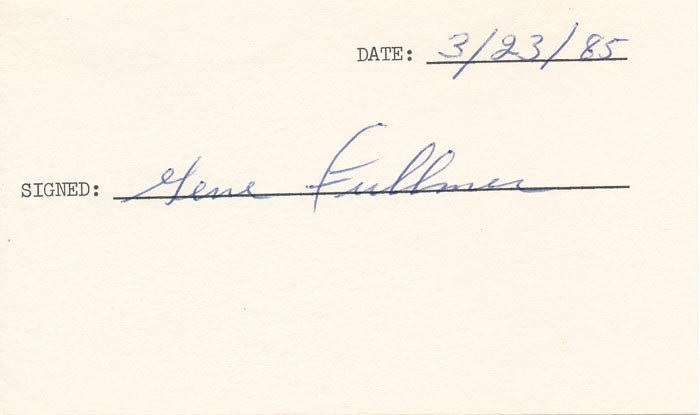 DATE: 3/23/85
SIGNED: Gene Fullmer